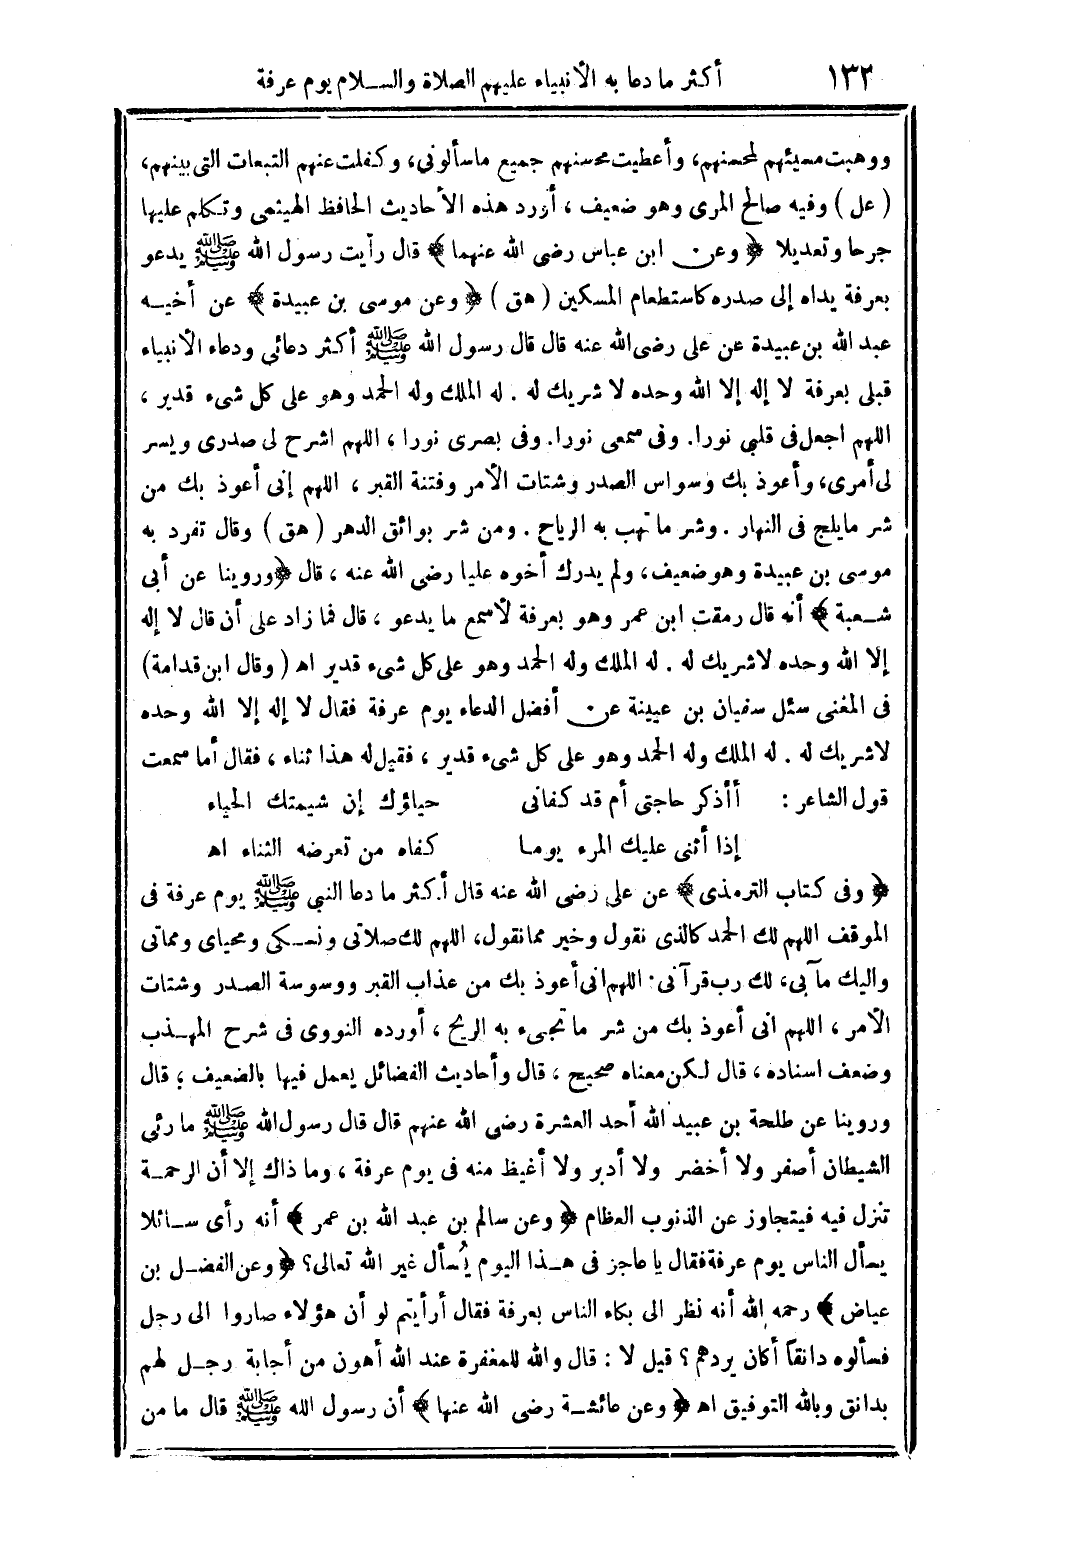 ١٣٢ أكثر ما دعا به الأنبياء عليهم الصلاة والسلام يوم عرفة
ووهبت مسيئهم لمحسنهم، وأعطيت محسنهم جميع ماسألونى، وكفلت عنهم التبعات التى بينهم،
(عل) وفيه صالح المرى وهو ضعيف، أورد هذه الأحاديث الحافظ الهيثمى وتكلم عليها
جرحا وتعديلا ﴿وعن ابن عباس رضى الله عنهما﴾ قال رأيت رسول الله ﷺ يدعو
بعرفة يداه إلى صدره كاستطعام المسكين (هق) ﴿وعن موسى بن عبيدة﴾ عن أخيه
عبد الله بن عبيدة عن على رضى الله عنه قال قال رسول الله ﷺ أكثر دعائى ودعاء الأنبياء
قبلى بعرفة لا إله إلا الله وحده لا شريك له. له الملك وله الحمد وهو على كل شىء قدير،
اللهم اجعل فى قلبى نورا. وفى سمعى نورا. وفى بصرى نورا، اللهم اشرح لى صدرى ويسر
لى أمرى، وأعوذ بك وسواس الصدر وشتات الأمر وفتنة القبر، اللهم إنى أعوذ بك من
شر مايلج فى النهار. وشر ما تهب به الرياح. ومن شر بوائق الدهر (هق) وقال تفرد به
موسى بن عبيدة وهو ضعيف، ولم يدرك أخوه عليا رضي الله عنه، قال ﴿وروينا عن أبى
شعبة﴾ أنه قال رمقت ابن عمر وهو بعرفة لأسمع ما يدعو، قال فما زاد على أن قال لا إله
إلا الله وحده لاشريك له. له الملك وله الحمد وهو على كل شىء قدير اه (وقال ابن قدامة)
فى المغنى سئل سفيان بن عيينة عن أفضل الدعاء يوم عرفة فقال لا إله إلا الله وحده
لاشريك له. له الملك وله الحمد وهو على كل شىء قدير، فقيل له هذا ثناء، فقال أما سمعت
قول الشاعر: أأذكر حاجتى أم قد كفانى حياؤك إن شيمتك الحياء
إذا أثنى عليك المرء يوما كفاه من تعرضه الثناء اه
﴿وفى كتاب الترمذى﴾ عن على رضى الله عنه قال أكثر ما دعا النبي ﷺ يوم عرفة فى
الموقف اللهم لك الحمد كالذى نقول وخير مما نقول، اللهم لك صلاتى ونسكى ومحياى ومماتى
واليك مآبى، لك رب قرآنى: اللهم انى أعوذ بك من عذاب القبر ووسوسة الصدر وشتات
الأمر، اللهم انى أعوذ بك من شر ما تجىء به الريح، أورده النووى فى شرح المهذب
وضعف اسناده، قال لكن معناه صحيح، قال وأحاديث الفضائل يعمل فيها بالضعيف؛ قال
وروينا عن طلحة بن عبيد الله أحد العشرة رضى الله عنهم قال قال رسول الله ﷺ ما رئى
الشيطان أصفر ولا أخضر ولا أدبر ولا أغيظ منه فى يوم عرفة، وما ذاك إلا أن الرحمة
تنزل فيه فيتجاوز عن الذنوب العظام ﴿وعن سالم بن عبد الله بن عمر﴾ أنه رأى سائلا
يسأل الناس يوم عرفة فقال يا عاجز فى هذا اليوم يُسأل غير الله تعالى؟ ﴿وعن الفضل بن
عياض﴾ رحمه الله أنه نظر الى بكاء الناس بعرفة فقال أرأيتم لو أن هؤلاء صاروا الى رجل
فسألوه دانقاً أكان يردهم؟ قيل لا: قال والله للمغفرة عند الله أهون من أجابة رجل لهم
بدانق وبالله التوفيق اه ﴿وعن عائشة رضى الله عنها﴾ أن رسول الله ﷺ قال ما من